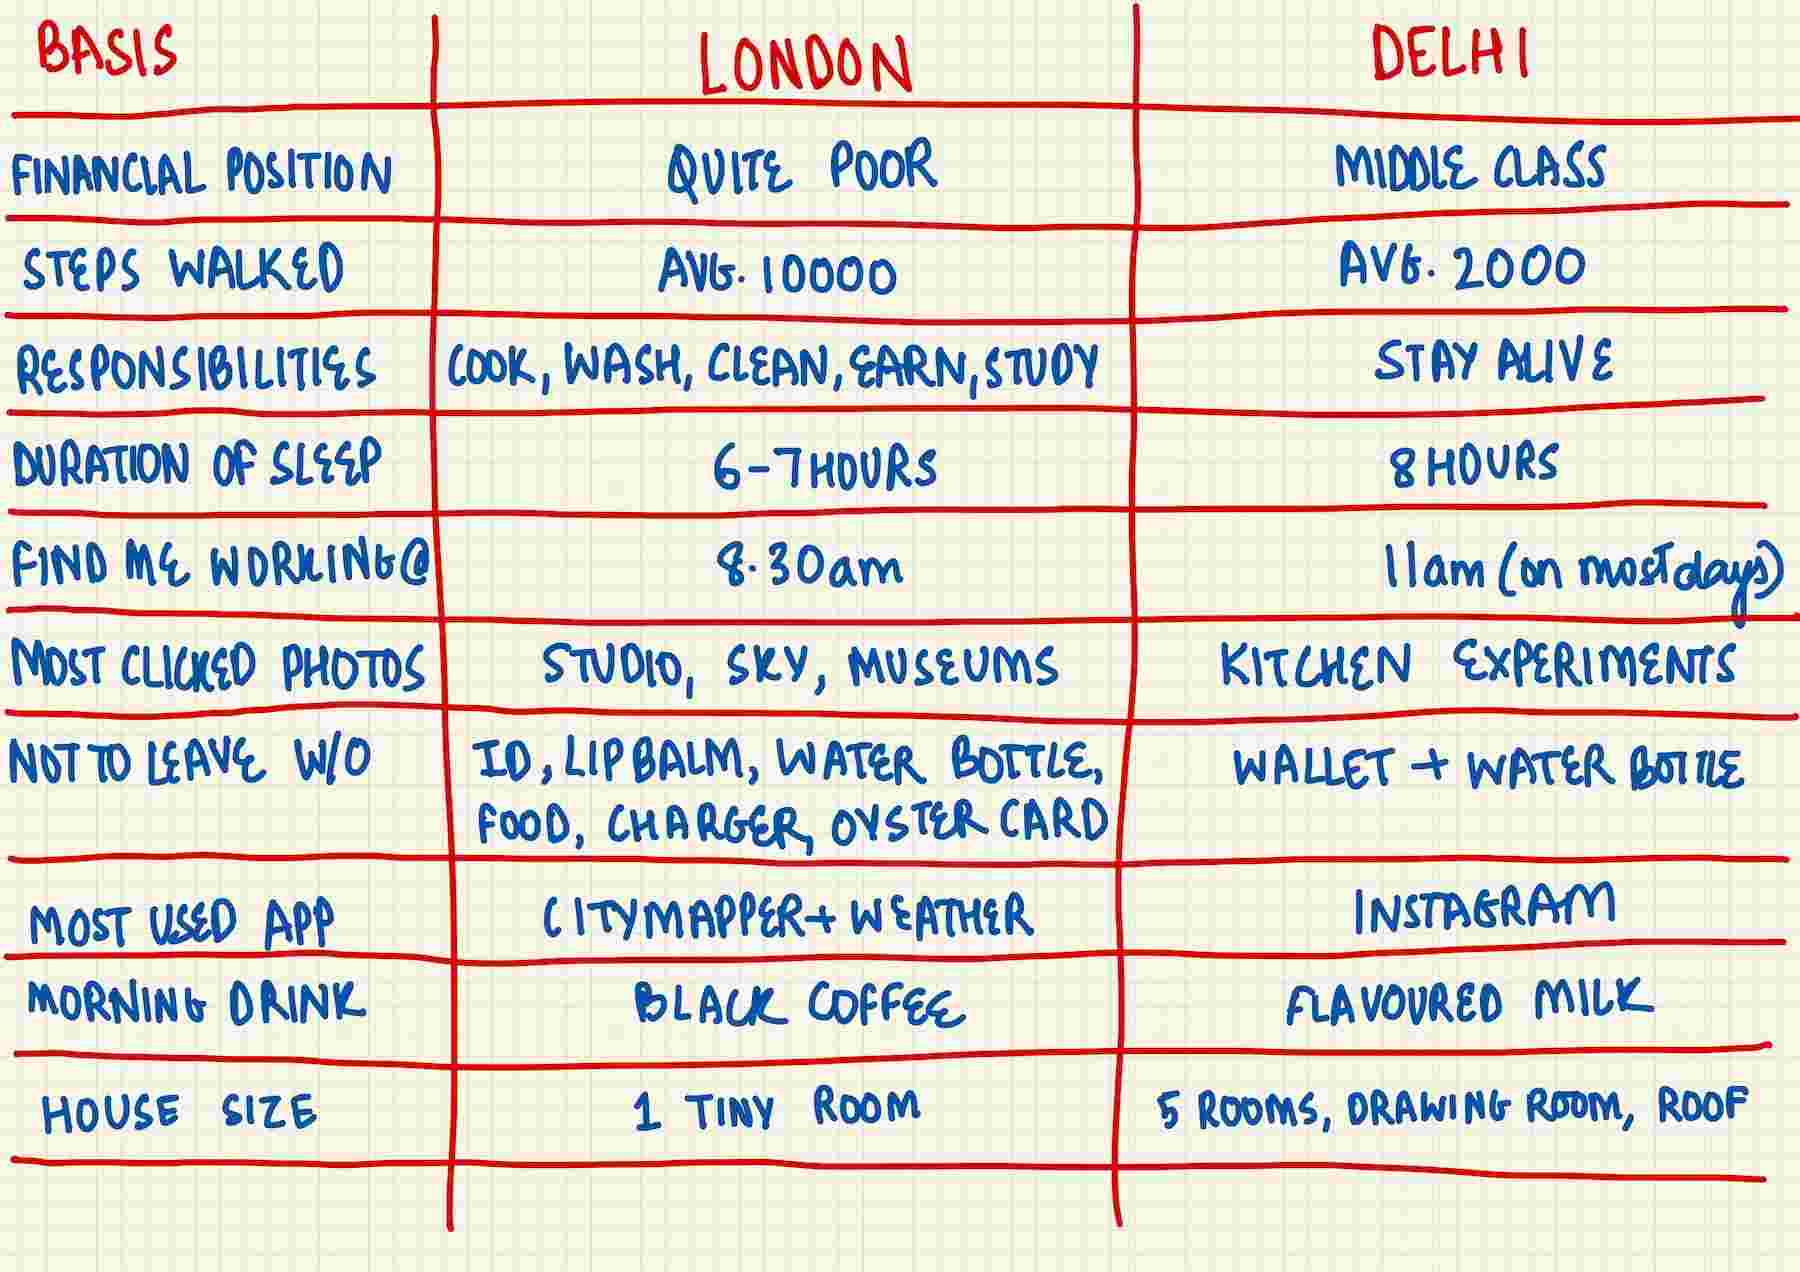 BASIS LONDON DELHI
FINANCIAL POSITION QUITE POOR MIDDLE CLASS
STEPS WALKED AVG. 10000 AVG. 2000
RESPONSIBILITIES COOK, WASH, CLEAN, EARN, STUDY STAY ALIVE
DURATION OF SLEEP 6-7HOURS 8 HOURS
FIND ME WORKING@ 8.30am 11am (on most days)
MOST CLICKED PHOTOS STUDIO, SKY, MUSEUMS KITCHEN EXPERIMENTS
NOT TO LEAVE W/O ID, LIP BALM, WATER BOTTLE, WALLET + WATER BOTTLE
FOOD, CHARGER, OYSTER CARD
MOST USED APP CITYMAPPER + WEATHER INSTAGRAM
MORNING DRINK BLACK COFFEE FLAVOURED MILK
HOUSE SIZE 1 TINY ROOM 5 ROOMS, DRAWING ROOM, ROOF